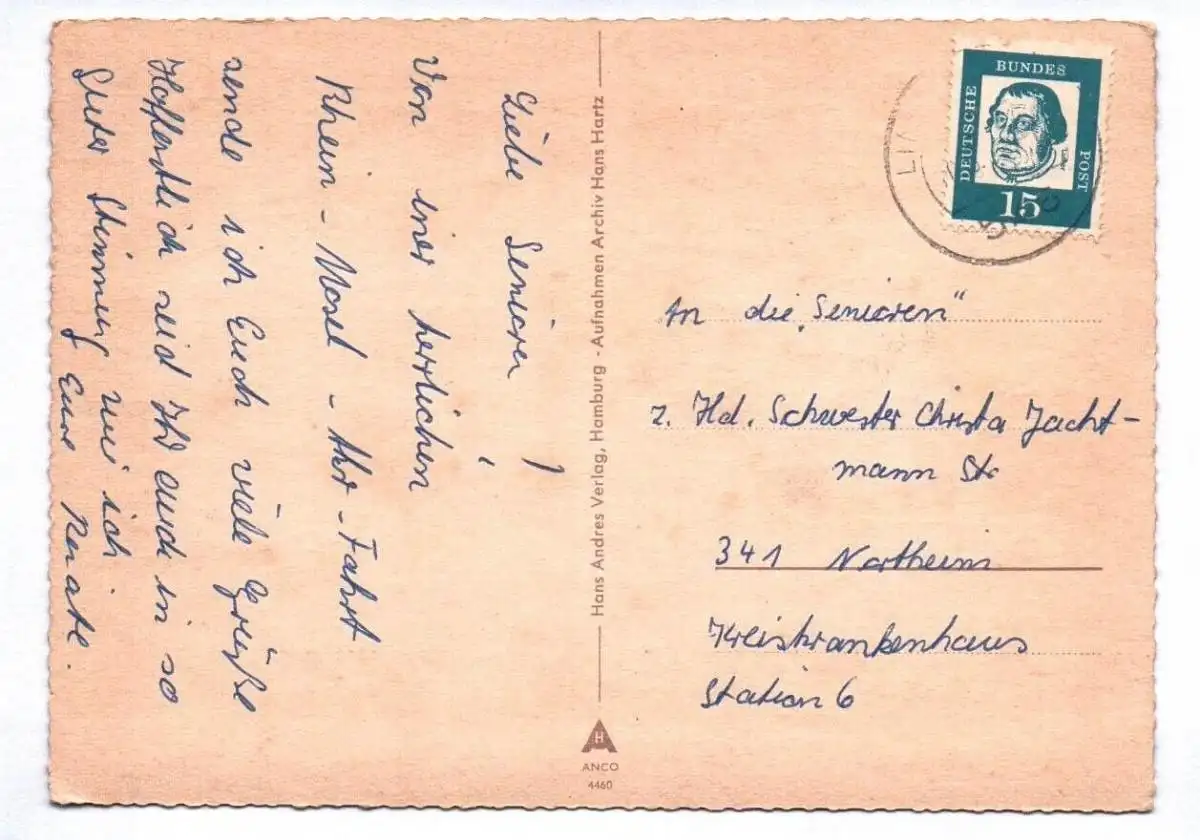 Liebe Senioren!
Von einer herrlichen
Rhein-Mosel-Ahr-Fahrt
sende ich Euch viele Grüße
Hoffentlich seid Ihr auch in so
guter Stimmung wie ich
Eure Renate.
Hans Andres Verlag, Hamburg - Aufnahmen Archiv Hans Hartz
ANCO
4460
DEUTSCHE
BUNDES
POST
15
An die „Senioren“
z. Hd. Schwester Christa Jacht-
mann
341 Northeim
Kreiskrankenhaus
Station 6